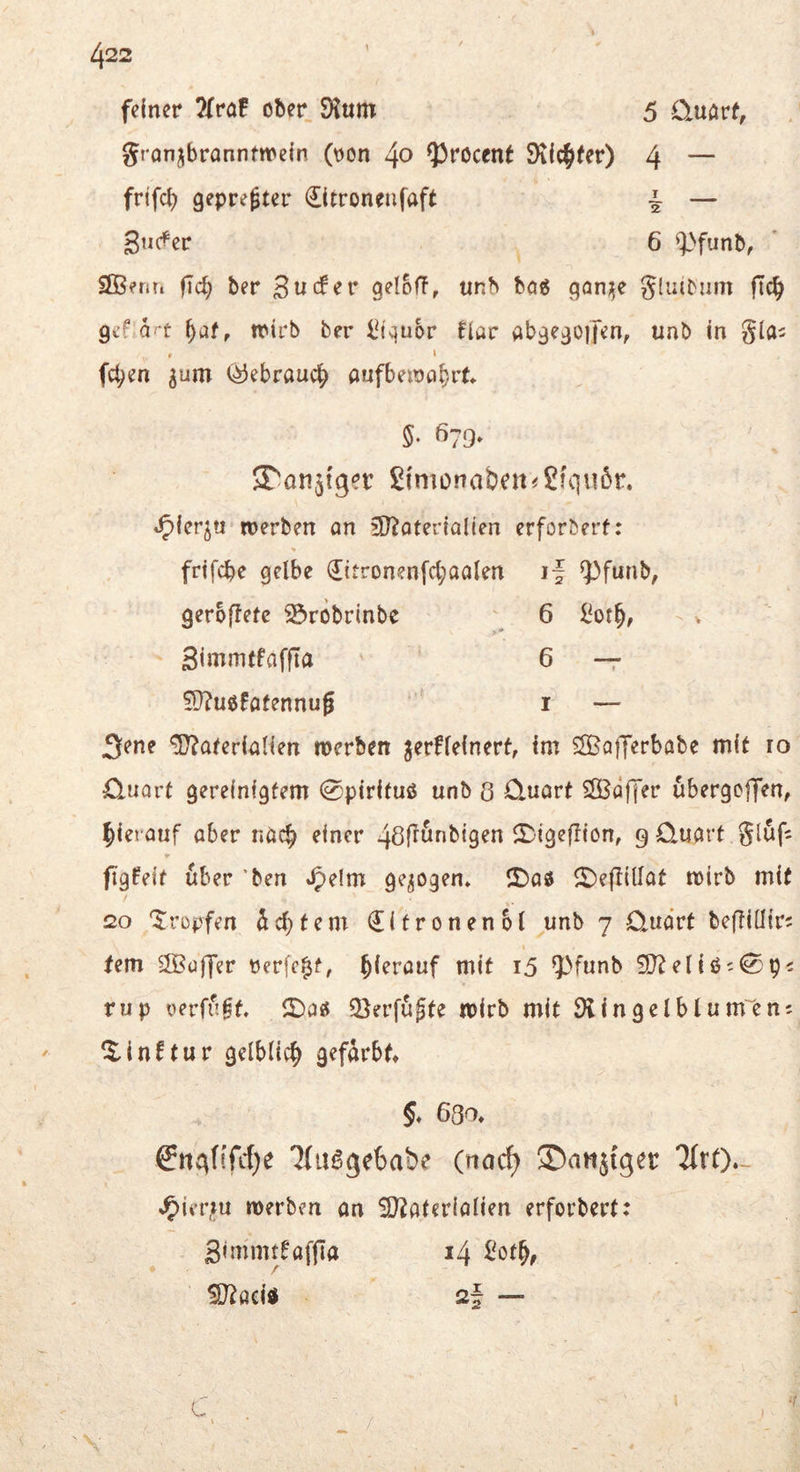 422
feiner Arak oder Rum 5 Quart,
Franzbranntwein (von 40 Procent Richter) 4 —
frisch gepreßter Citronensaft ½ —
Zucker 6 Pfund,
Wenn sich der Zucker gelöst, und das ganze Fluidum sich
geklärt hat, wird der Liquör klar abgegossen, und in Fla-
schen zum Gebrauch aufbewahrt.
§. 679.
Danziger Limonaden-Liquör.
Hierzu werden an Materialien erfordert:
frische gelbe Citronenschaalen 1½ Pfund,
geröstete Brodrinde 6 Loth,
Zimmtkassia 6 —
Muskatennuß 1 —
Jene Materialien werden zerkleinert, im Wasserbade mit 10
Quart gereinigtem Spiritus und 8 Quart Wasser übergossen,
hierauf aber nach einer 48stündigen Digestion, 9 Quart Flüs-
sigkeit über den Helm gezogen. Das Destillat wird mit
20 Tropfen ächtem Citronenöl und 7 Quart destillir-
tem Wasser versetzt, hierauf mit 15 Pfund Melis-Sy-
rup versüßt. Das Versüßte wird mit Ringelblumen-
Tinktur gelblich gefärbt.
§. 680.
Englische Ausgebade (nach Danziger Art).
Hierzu werden an Materialien erfordert:
Zimmtkassia 14 Loth,
Macis 2½ —